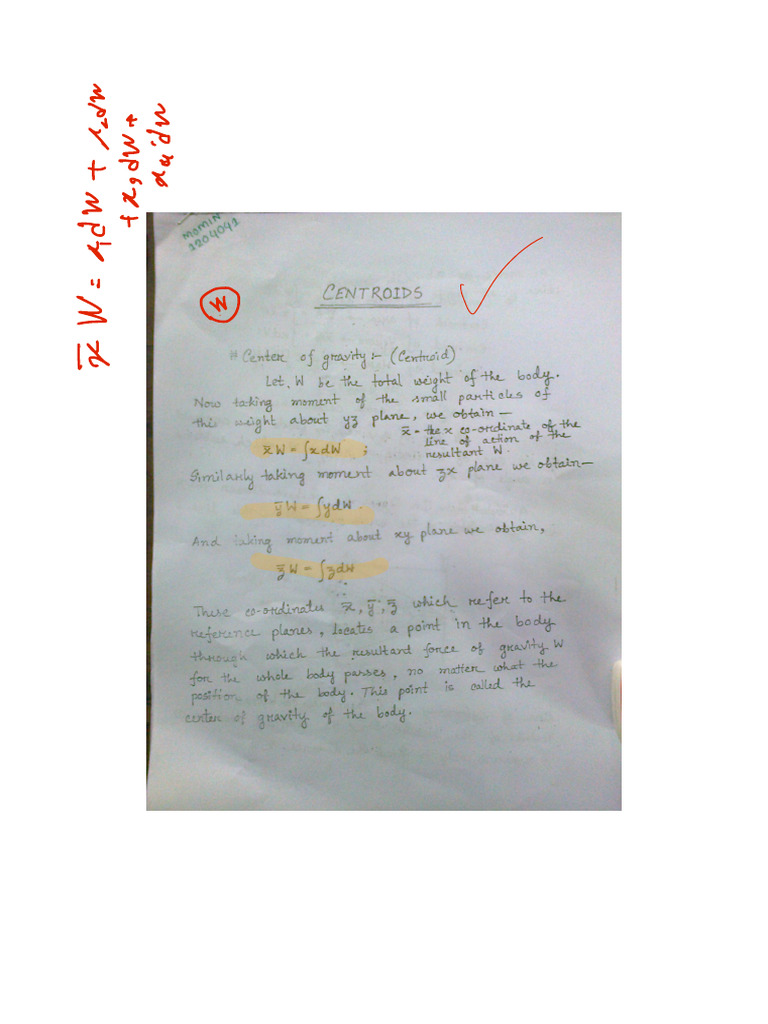 x̄ W = x₁dW + x₂dW
+ x₃dW +
x₄dW
MOMIN
1204041
W
CENTROIDS
# Center of gravity:- (Centroid)
Let, W be the total weight of the body.
Now taking moment of the small particles of
this weight about yz plane, we obtain—
x̄ = the x co-ordinate of the
line of action of the
resultant W.
x̄W = ∫xdW ;
Similarly taking moment about zx plane we obtain—
ȳW = ∫ydW.
And taking moment about xy plane we obtain,
z̄W = ∫zdW
These co-ordinates x̄, ȳ, z̄ which refer to the
reference planes, locates a point in the body
through which the resultant force of gravity W
for the whole body passes, no matter what the
position of the body. This point is called the
center of gravity of the body.